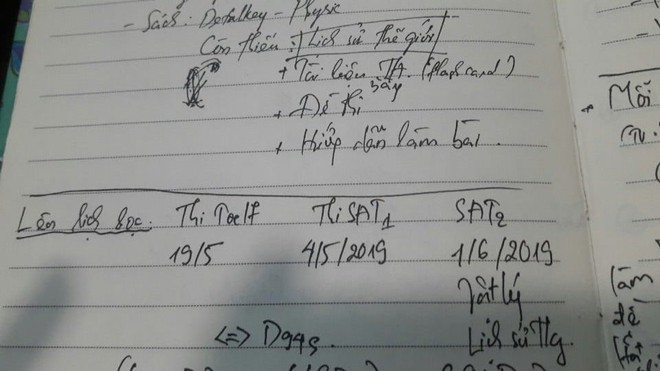 - Sách: Detalkey - Physic
Còn thiếu: Lịch sử thế giới
+ Tài liệu TA. (flash card)
+ Đề thi
+ Hướng dẫn làm bài.
Lên lịch học: Thi Toelf Thi SAT1 SAT2
19/5 4/5/2019 1/6/2019
Vật lý
Lịch sử Tg.
<=>
+ Mỗi
làm
đề